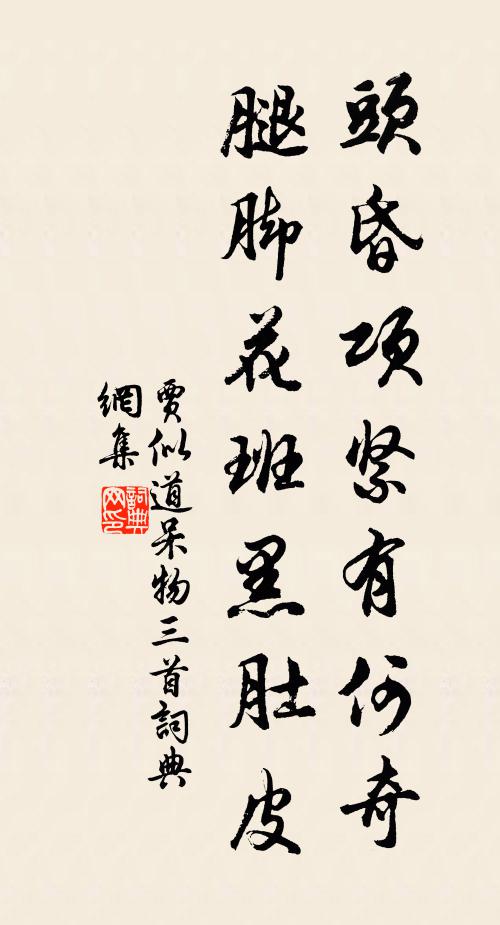 頭昏項紧有何奇
腿脚花班黑肚皮
賈似道呆物三首詞典
網集
詞典
网印